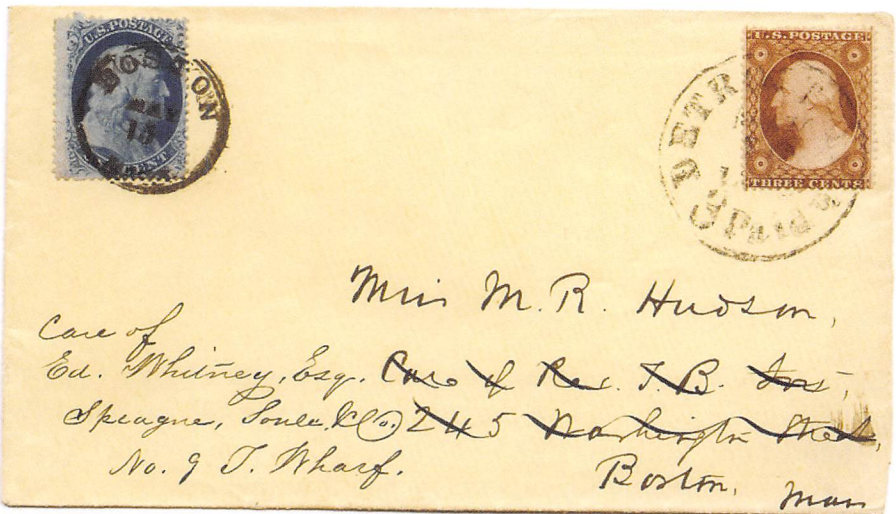 U.S. POSTAGE
BOSTON
MAY
15
MASS.
CENT
U.S. POSTAGE
THREE CENTS
DETR
Miss M. R. Hudson,
Care of
Ed. Whitney, Esq. Care of Rev. T. B.
Sprague, Soule, & Co. 245 Washington Street,
No. 9 T. Wharf.
Boston, Mass